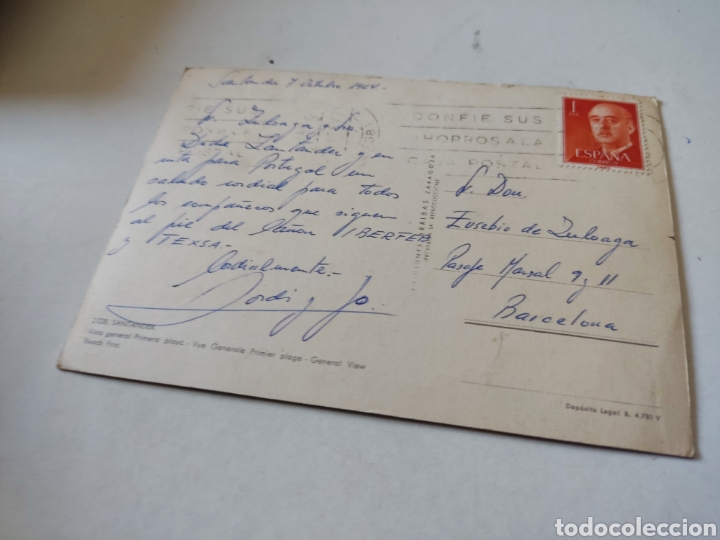 Santander 7 Octubre 1964.
Sr. Zuloaga y Sra.
Desde Santander y en
ruta para Portugal un
saludo cordial para todos
los compañeros que siguen
al pie del cañon IBERFER
y TEXSA.-
Cordialmente.-
Jordi y Jo.
2.028. SANTANDER
Vista general Primera playa - Vue Generale Primier plage - General View
Beach First
CONFIE SUS
AHORROS A LA
POSTAL
1
ESPAÑA
ZARAGOZA
PROHIBIDA LA REPRODUCCION
Sr. Don
Eusebio de Zuloaga
Pasaje Marsal 9 y 11
Barcelona
Depósito Legal B. 4.781 V
todocoleccion